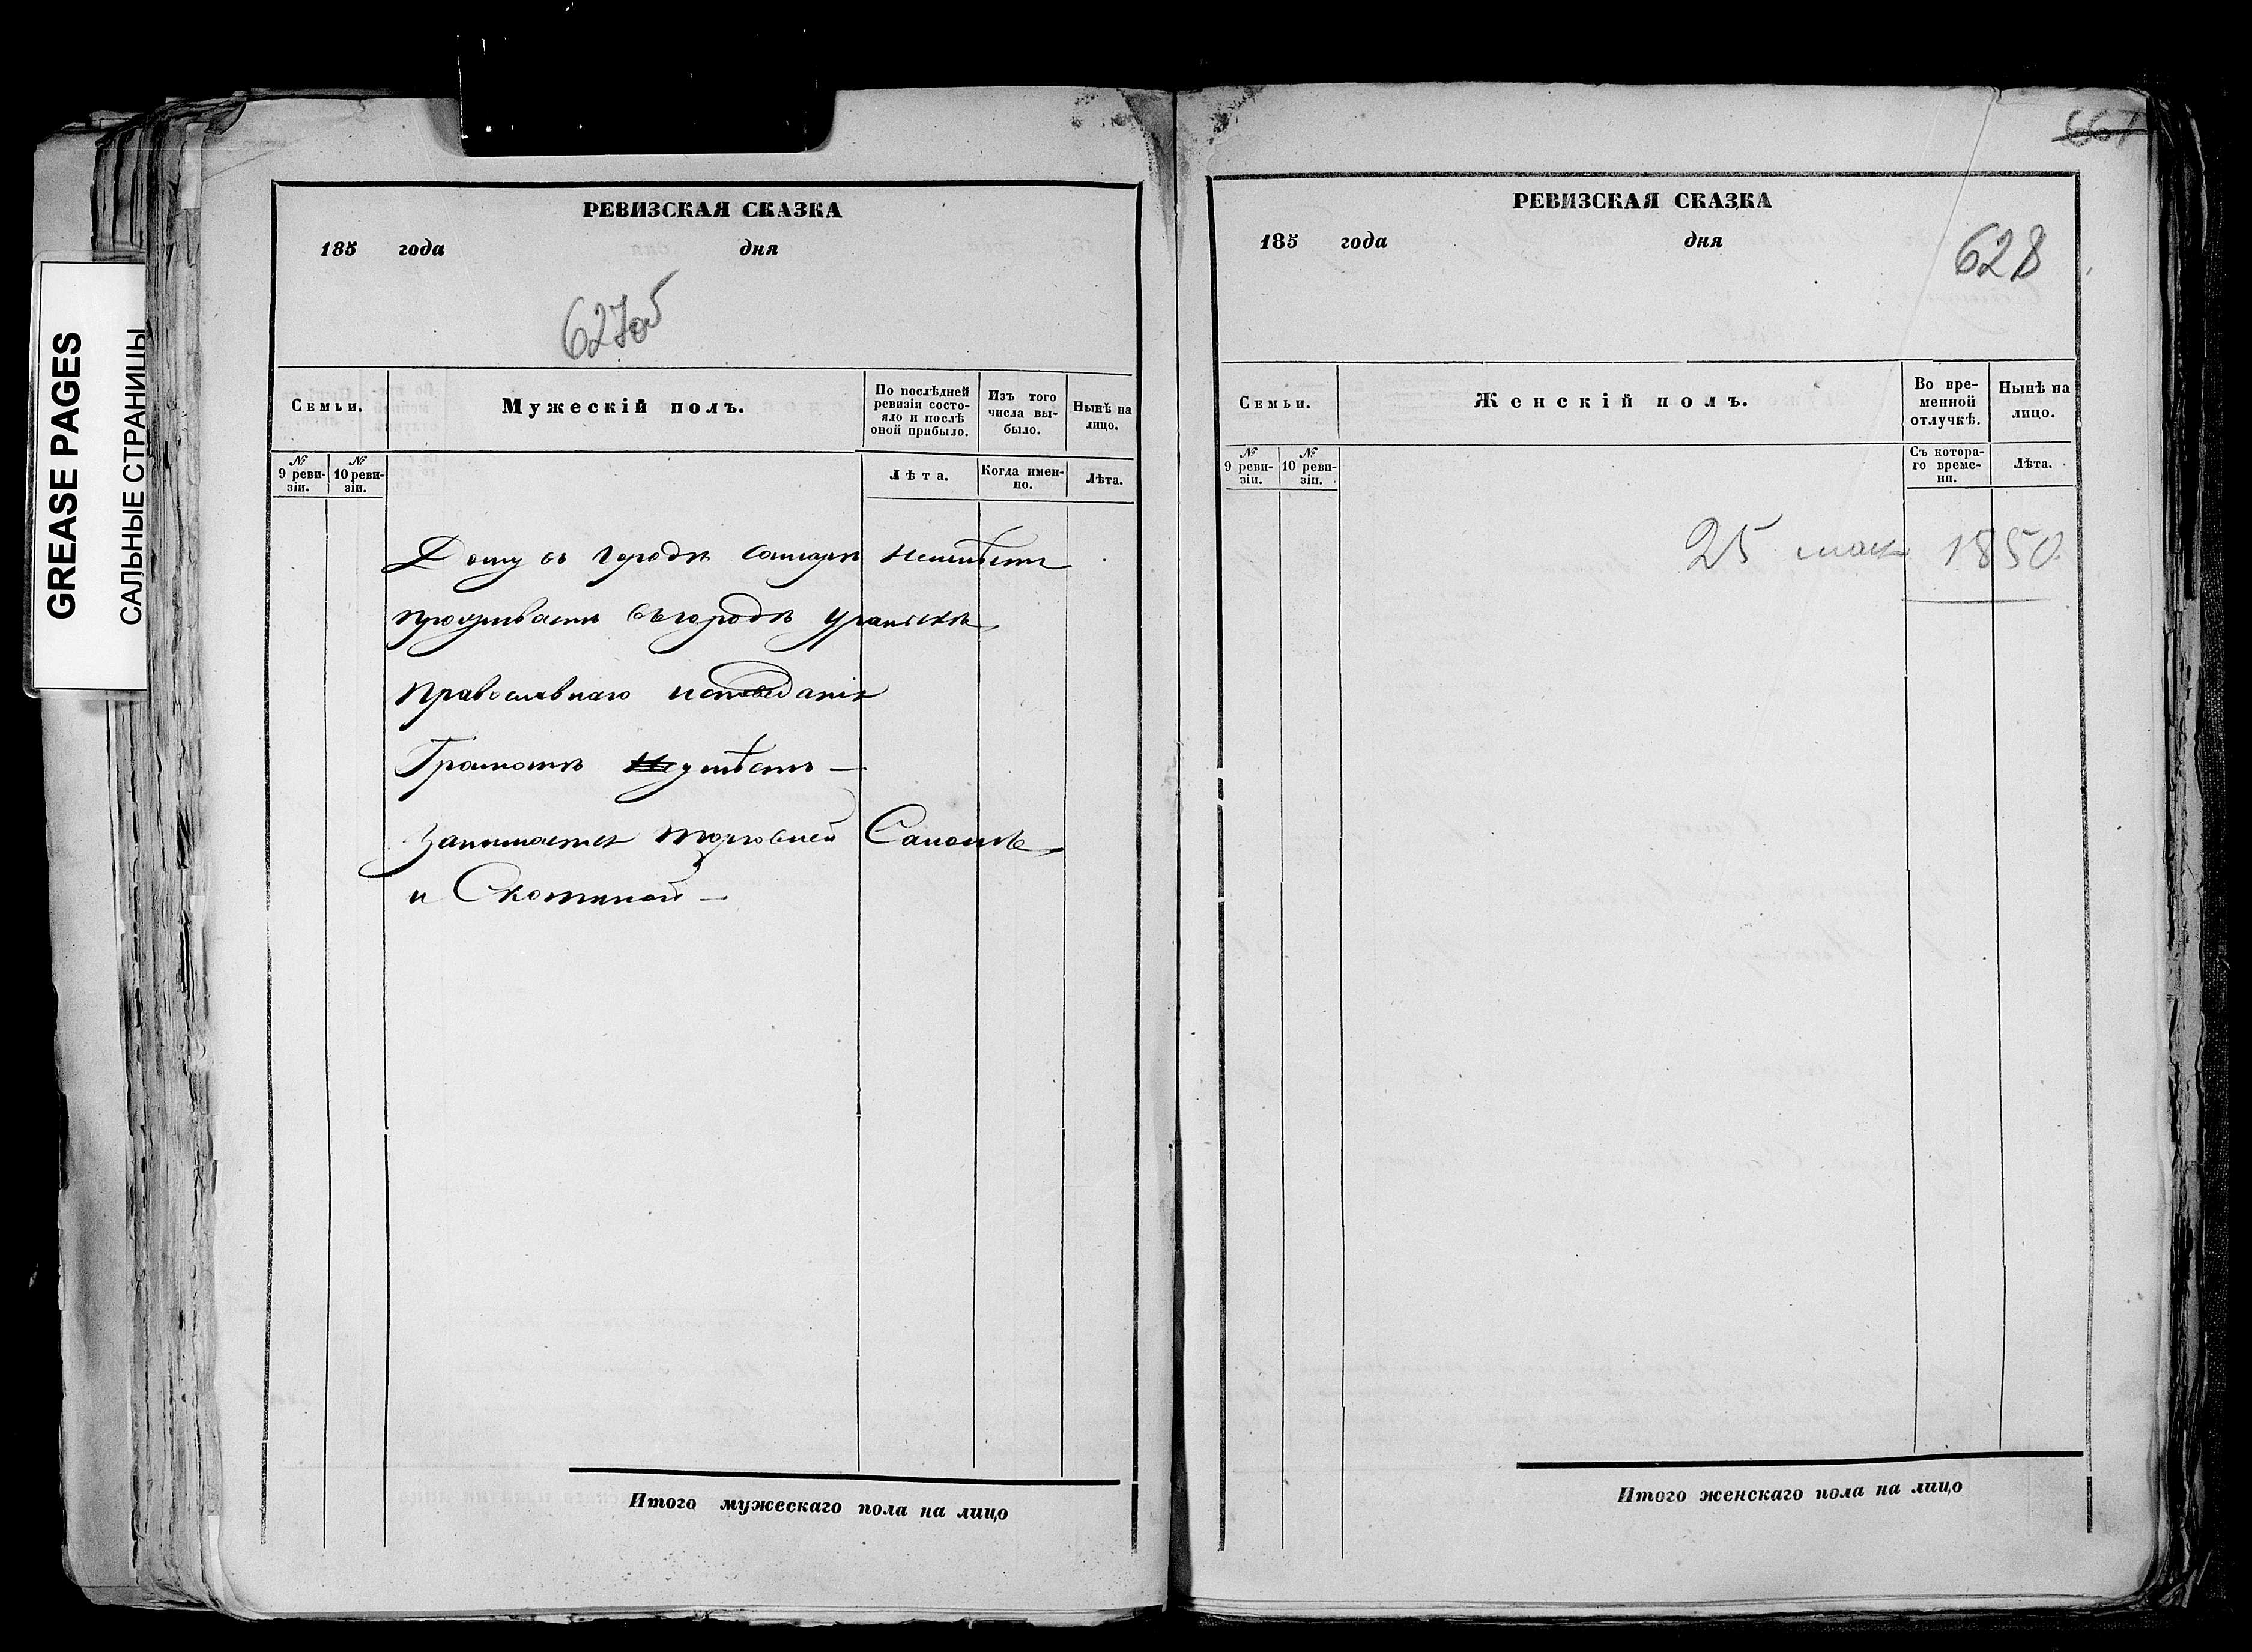 GREASE PAGES
САЛЬНЫЕ СТРАНИЦЫ
РЕВИЗСКАЯ СКАЗКА
185 года дня
627об
Семьи.
Мужескій полъ.
По послѣдней ревизіи состояло и послѣ оной прибыло.
Изъ того числа выбыло.
Нынѣ на лицо.
№ 9 ревизіи.
№ 10 ревизіи.
Лѣта.
Когда именно.
Лѣта.
Дому въ городѣ Самарѣ неимѣетъ
проживаетъ въ городѣ Уральскѣ
Православнаго исповеданія
Грамотѣ умѣетъ —
занимается торговлей Саломъ
и Скотиной —
Итого мужескаго пола на лицо
661
РЕВИЗСКАЯ СКАЗКА
185 года дня
628
Семьи.
Женскій полъ.
Во временной отлучкѣ.
Нынѣ на лицо.
№ 9 ревизіи.
№ 10 ревизіи.
Съ котораго времени.
Лѣта.
25 мая 1850
Итого женскаго пола на лицо